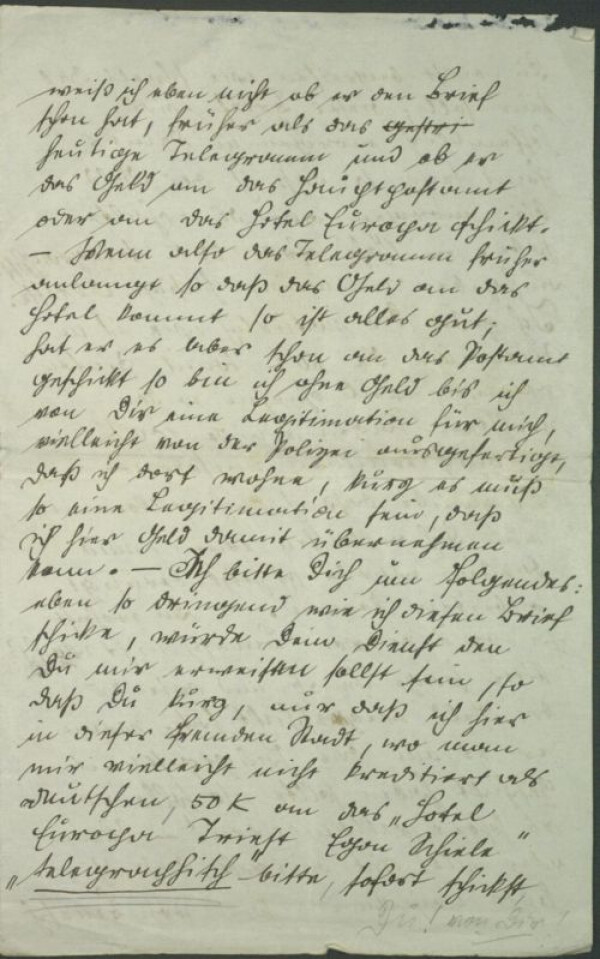 weiß ich eben nicht ob er den Brief
schon hat, früher als das gestri
heutige Telegramm und ob er
das Geld an das Hauptpostamt
oder an das Hotel Europa schickt.
– Wenn also das Telegramm früher
anlangt so daß das Geld an das
Hotel kommt so ist alles gut;
hat er es aber schon an das Postamt
geschickt so bin ich ohne Geld bis ich
von Dir eine Legitimation für mich,
vielleicht von der Polizei ausgefertigt,
daß ich dort wohne, kurz es muß
so eine Legitimation sein, daß
ich hier Geld damit übernehmen
kann. – Ich bitte Dich um folgendes:
eben so dringend wie ich diesen Brief
schicke, würde Dein Dienst den
Du mir erweisen sollst sein, so
daß Du kurz, nur daß ich hier
in dieser fremden Stadt, wo man
mir vielleicht nicht kreditiert als
deutschen, 50 K an das „Hotel
Europa Triest Egon Schiele"
„telegraphisch" bitte, sofort schickst,
Du! von Dir!